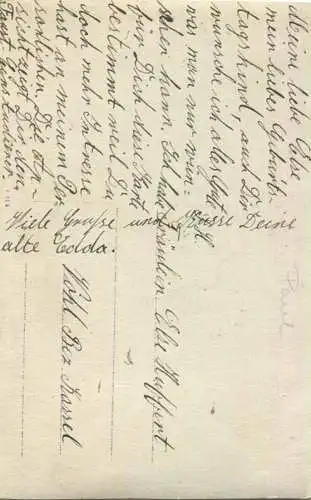 Meine liebe Else
mein liebes Geburts-
tagskind, auch Dir
wünsche ich alles Gute
was man nur wün-
schen kann. Ich habe
für Dich diese Karte
bestimmt weil Du
doch mehr Interesse
hast an meinem Per-
sönlichen. Die An-
sicht zeigt Dir den
Viele Grüße und Küsse Deine
alte Edda.
Fräulein Else Huffert
Wohl. Bez Kassel
Paul